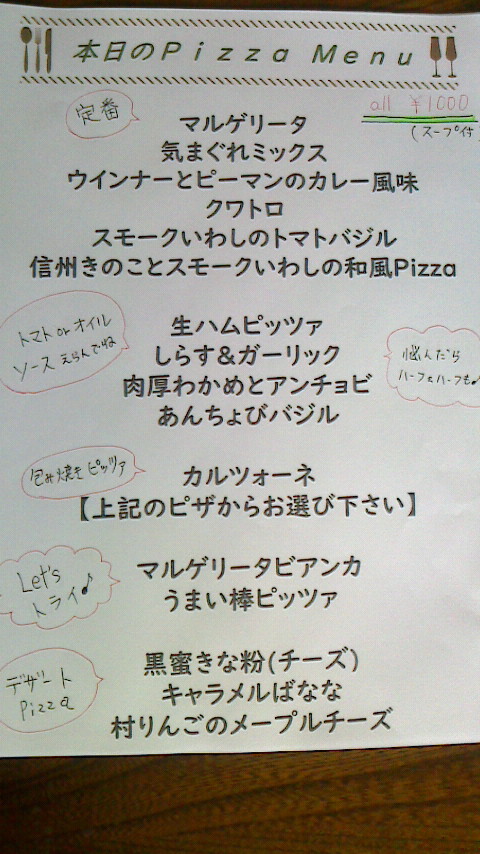 本日のPizza Menu
all ¥1000
(スープ付)
定番
マルゲリータ
気まぐれミックス
ウインナーとピーマンのカレー風味
クワトロ
スモークいわしのトマトバジル
信州きのことスモークいわしの和風Pizza
トマト or オイル
ソース えらんでね
生ハムピッツァ
しらす&ガーリック
肉厚わかめとアンチョビ
あんちょびバジル
悩んだら
ハーフ&ハーフも♪
包み焼きピッツァ
カルツォーネ
【上記のピザからお選び下さい】
Let's
トライ♪
マルゲリータビアンカ
うまい棒ピッツァ
デザート
Pizza
黒蜜きな粉(チーズ)
キャラメルばなな
村りんごのメープルチーズ